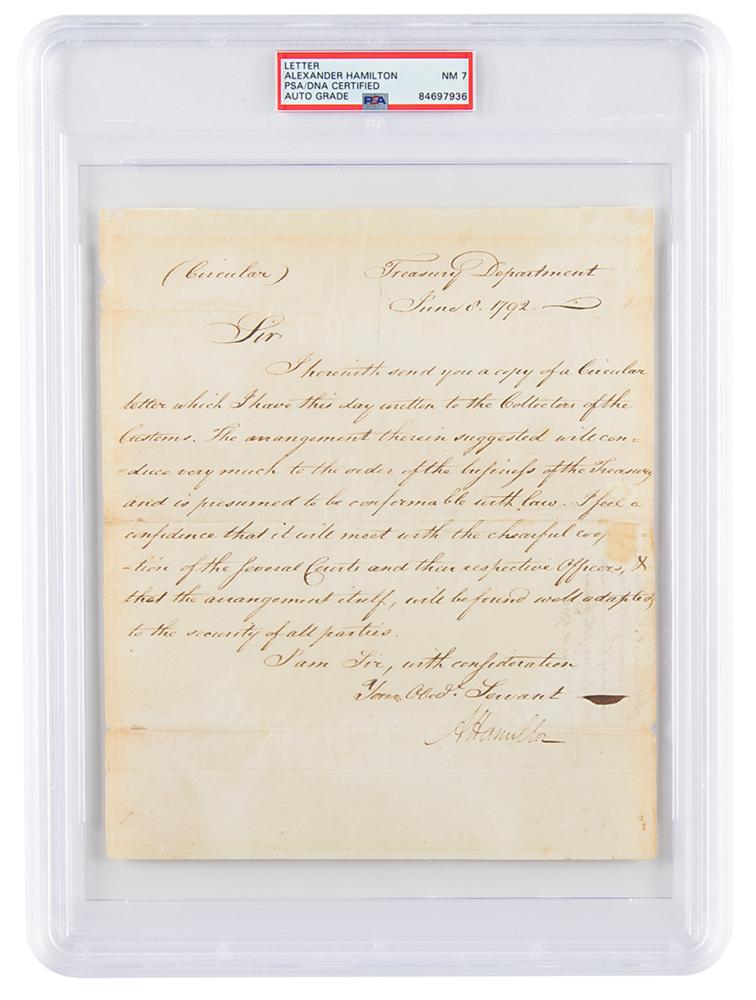 LETTER
ALEXANDER HAMILTON NM 7
PSA/DNA CERTIFIED
AUTO GRADE PSA 84697936
(Circular) Treasury Department
June 8. 1792.
Sir
I herewith send you a copy of a Circular
letter which I have this day written to the Collectors of the
Customs. The arrangement therein suggested will con=
=duce very much to the order of the business of the Treasury
and is presumed to be conformable with law. I feel a
confidence that it will meet with the chearful coop
-tion of the several Courts and their respective Officers, &
that the arrangement itself, will be found well adapted
to the security of all parties.
I am Sir, with consideration
Your Obedt. Servant
A Hamilton